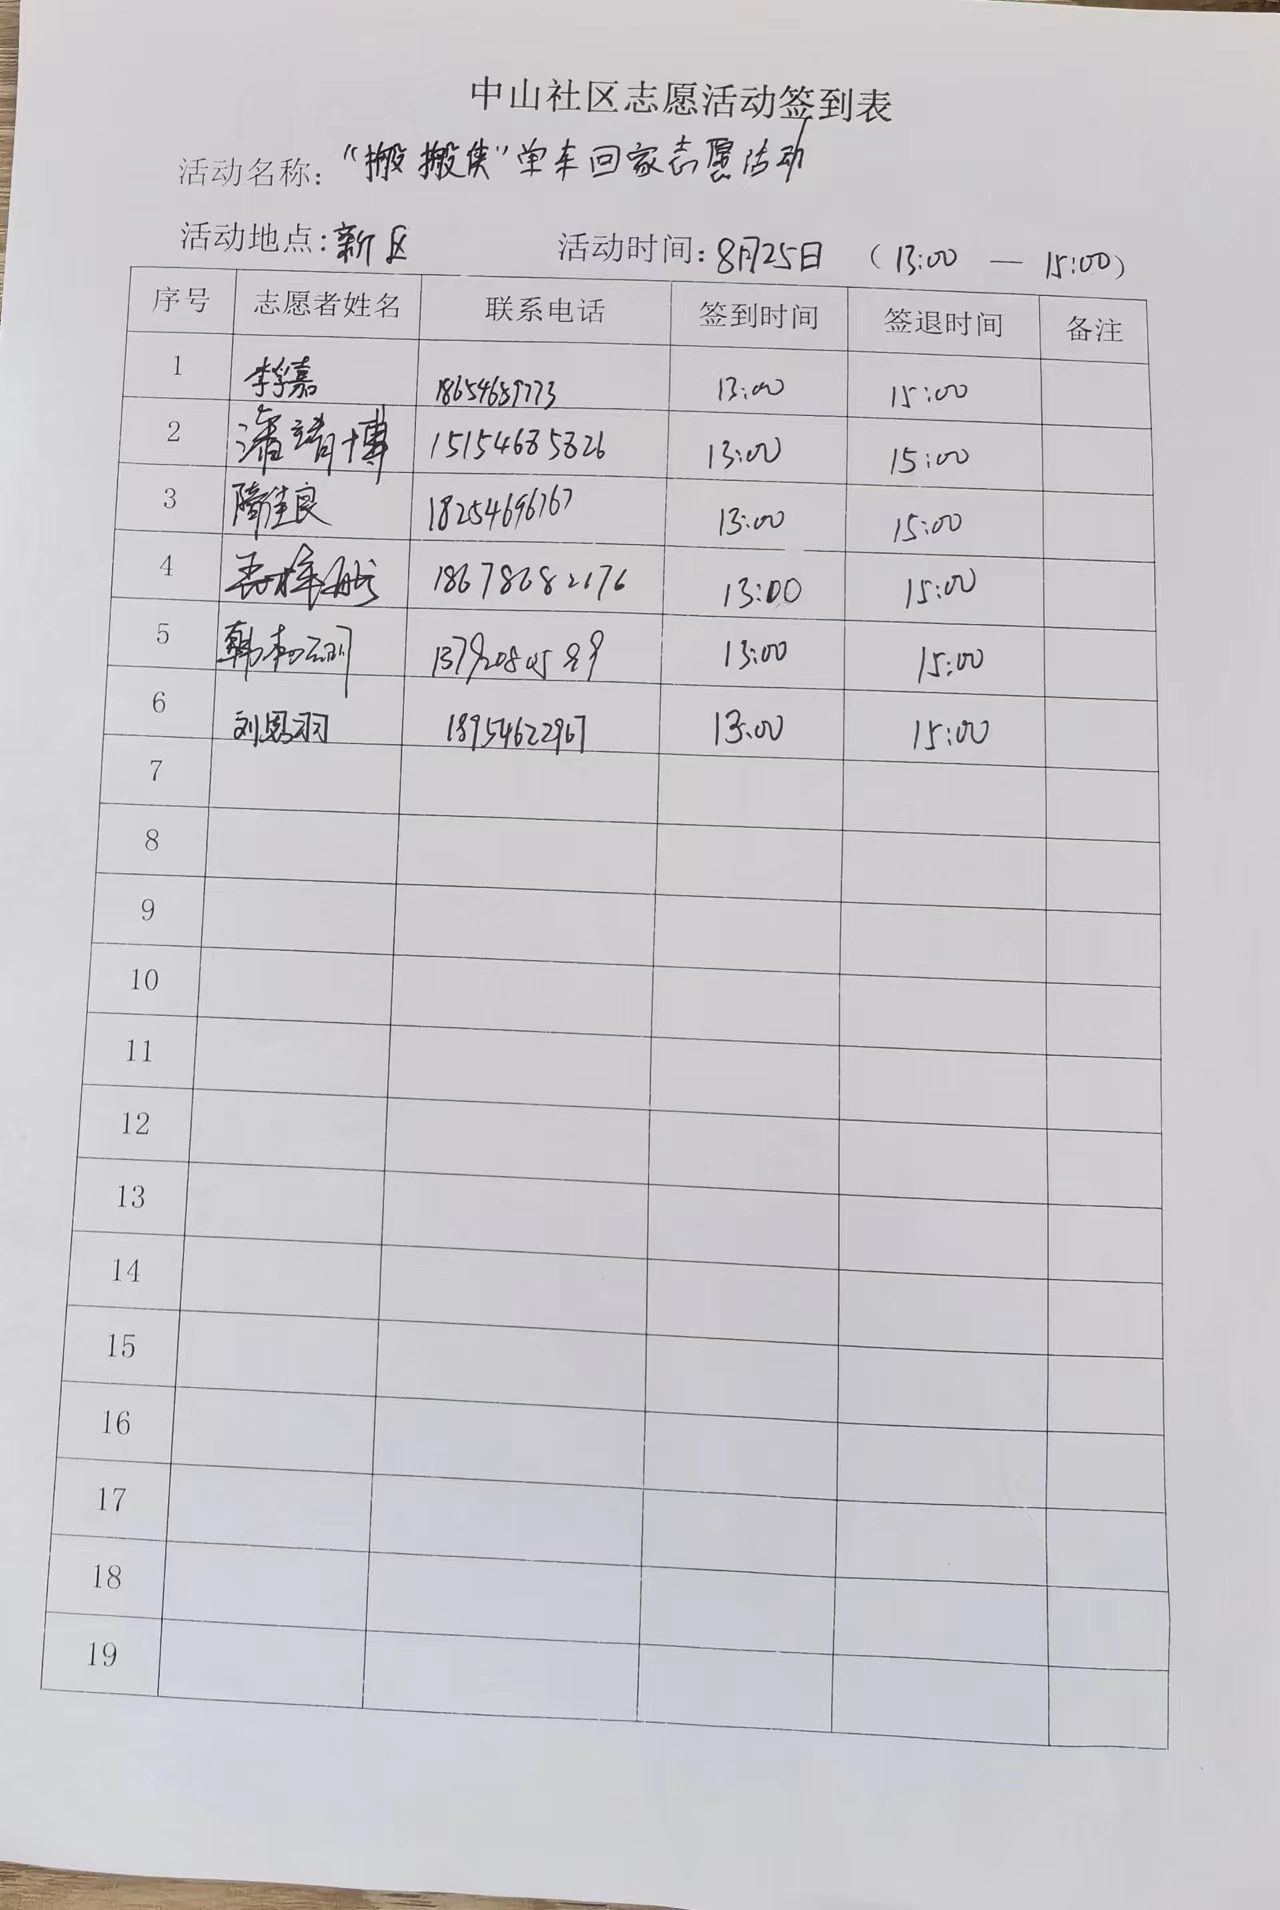 中山社区志愿活动签到表
活动名称："搬搬侠"单车回家志愿活动
活动地点：新区 活动时间：8月25日 （13:00 — 15:00）
序号 志愿者姓名 联系电话 签到时间 签退时间 备注
1 李学嘉 18654689773 13:00 15:00
2 潘靖博 15154685826 13:00 15:00
3 隋佳良 18254696767 13:00 15:00
4 18678682176 13:00 15:00
5 13:00 15:00
6 刘恩羽 18954622967 13:00 15:00
7
8
9
10
11
12
13
14
15
16
17
18
19